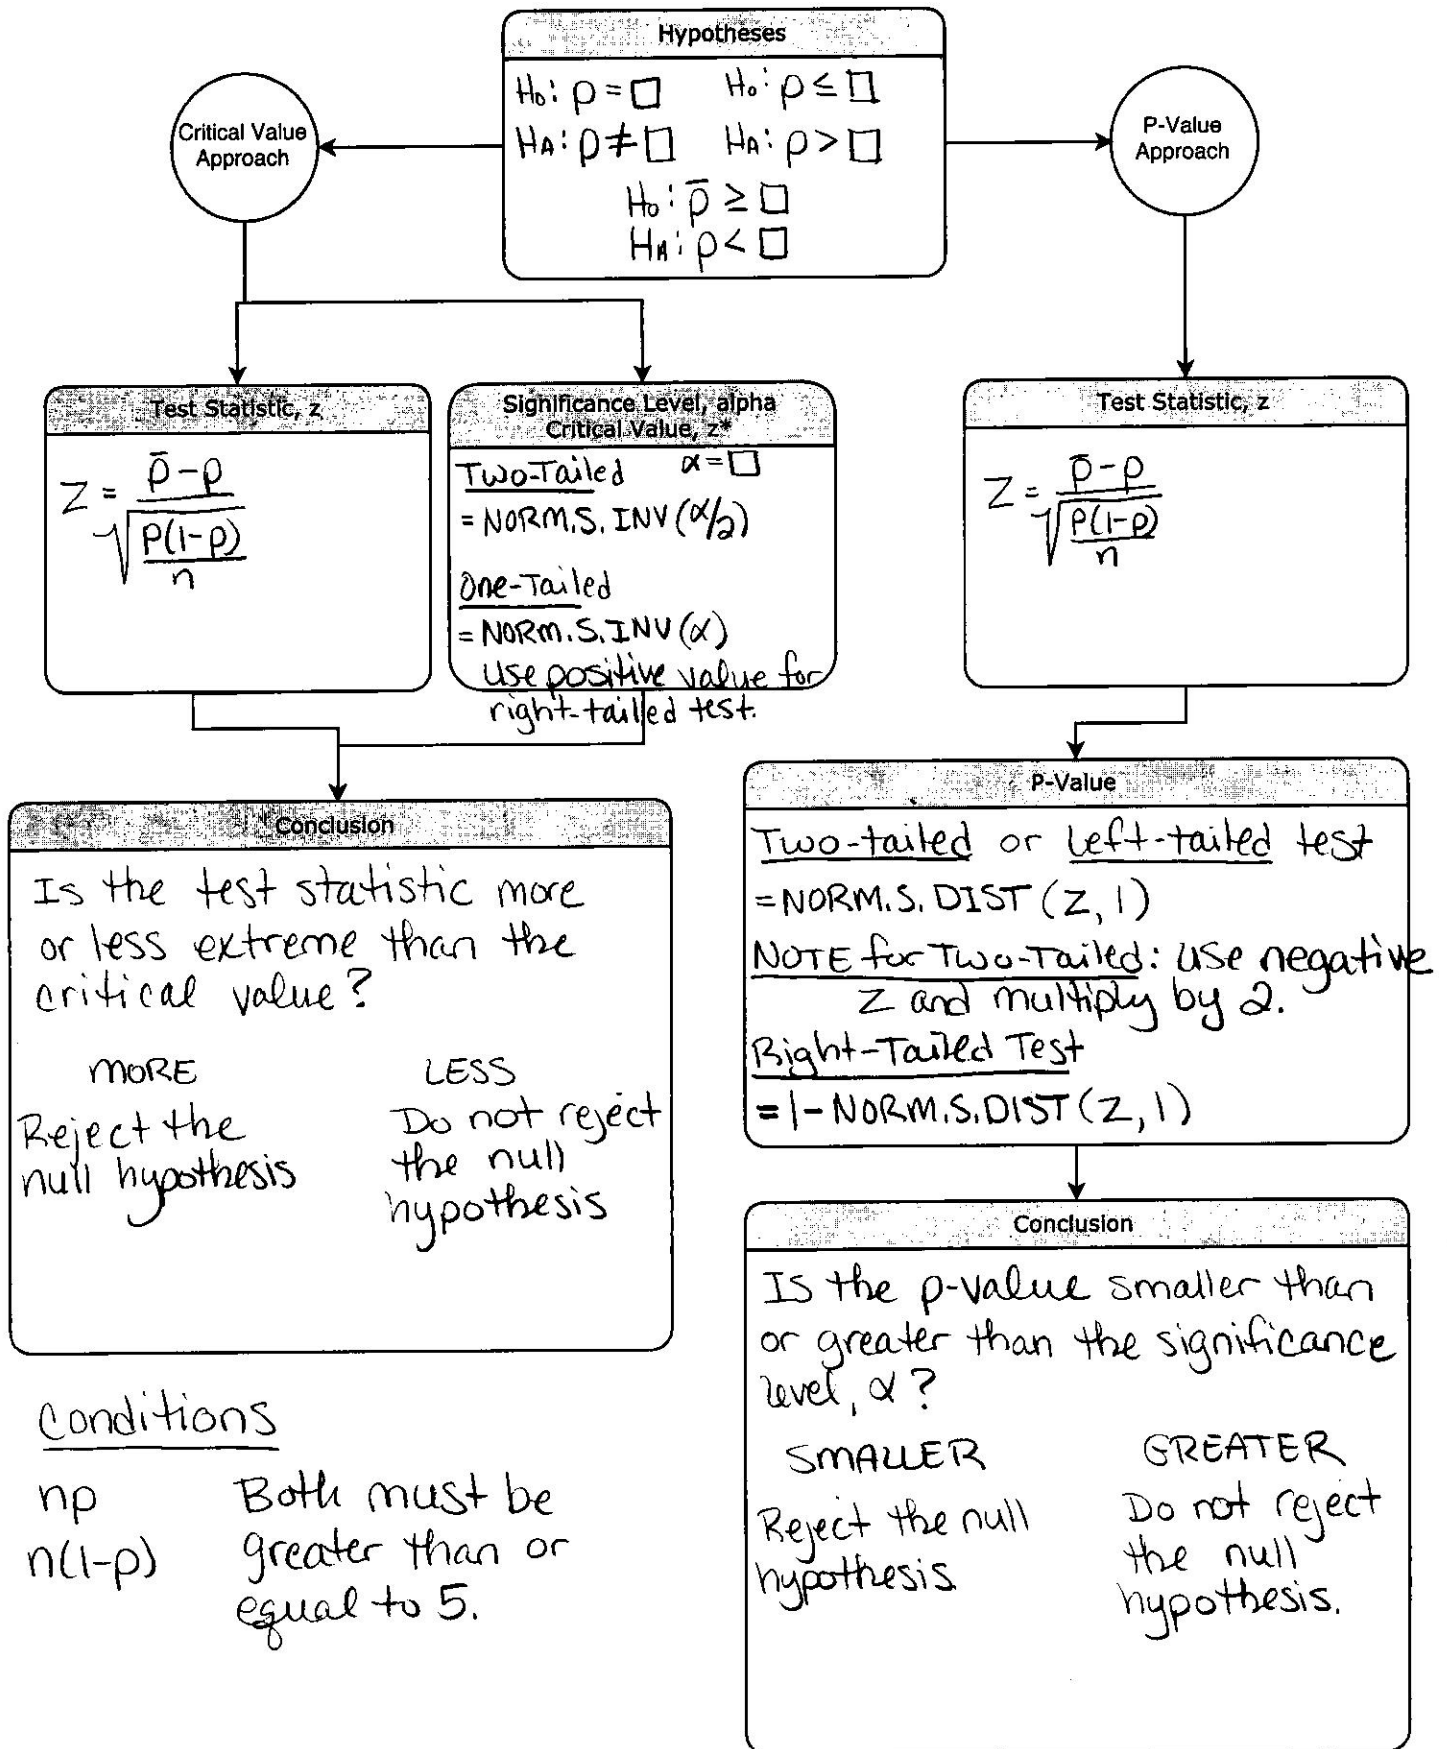 Hypotheses
H₀: p = □ H₀: p ≤ □
HA: p ≠ □ HA: p > □
H₀: p̄ ≥ □
HA: p < □
Critical Value
Approach
P-Value
Approach
Test Statistic, z
Z = (p̄ - p) / √(p(1-p)/n)
Significance Level, alpha
Critical Value, z*
Two-Tailed α = □
= NORM.S.INV(α/2)
One-Tailed
= NORM.S.INV(α)
use positive value for
right-tailed test.
Test Statistic, z
Z = (p̄ - p) / √(p(1-p)/n)
Conclusion
Is the test statistic more
or less extreme than the
critical value?
MORE LESS
Reject the Do not reject
null hypothesis the null
hypothesis
P-Value
Two-tailed or Left-tailed test
= NORM.S.DIST(Z, 1)
NOTE for Two-Tailed: use negative
Z and multiply by 2.
Right-Tailed Test
= 1 - NORM.S.DIST(Z, 1)
Conclusion
Is the p-value smaller than
or greater than the significance
level, α?
SMALLER GREATER
Reject the null Do not reject
hypothesis the null
hypothesis.
Conditions
np Both must be
n(1-p) greater than or
equal to 5.